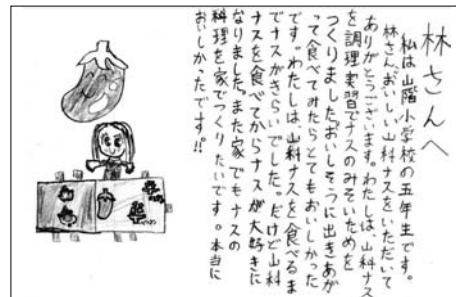 林さんへ
私は山階小学校の五年生です。
林さん、おいしい山科ナスをいただいて
ありがとうございます。わたしは、山科ナス
を調理実習でナスのみそいためを
つくりました。おいしそうに出きあが
って食べてみたらとてもおいしかった
です。わたしは、山科ナスを食べるま
でナスがきらいでした。だけど山科
ナスを食べてからナスが大好きに
なりました。また家でもナスの
料理を家でつくりたいです。本当に
おいしかったです!!